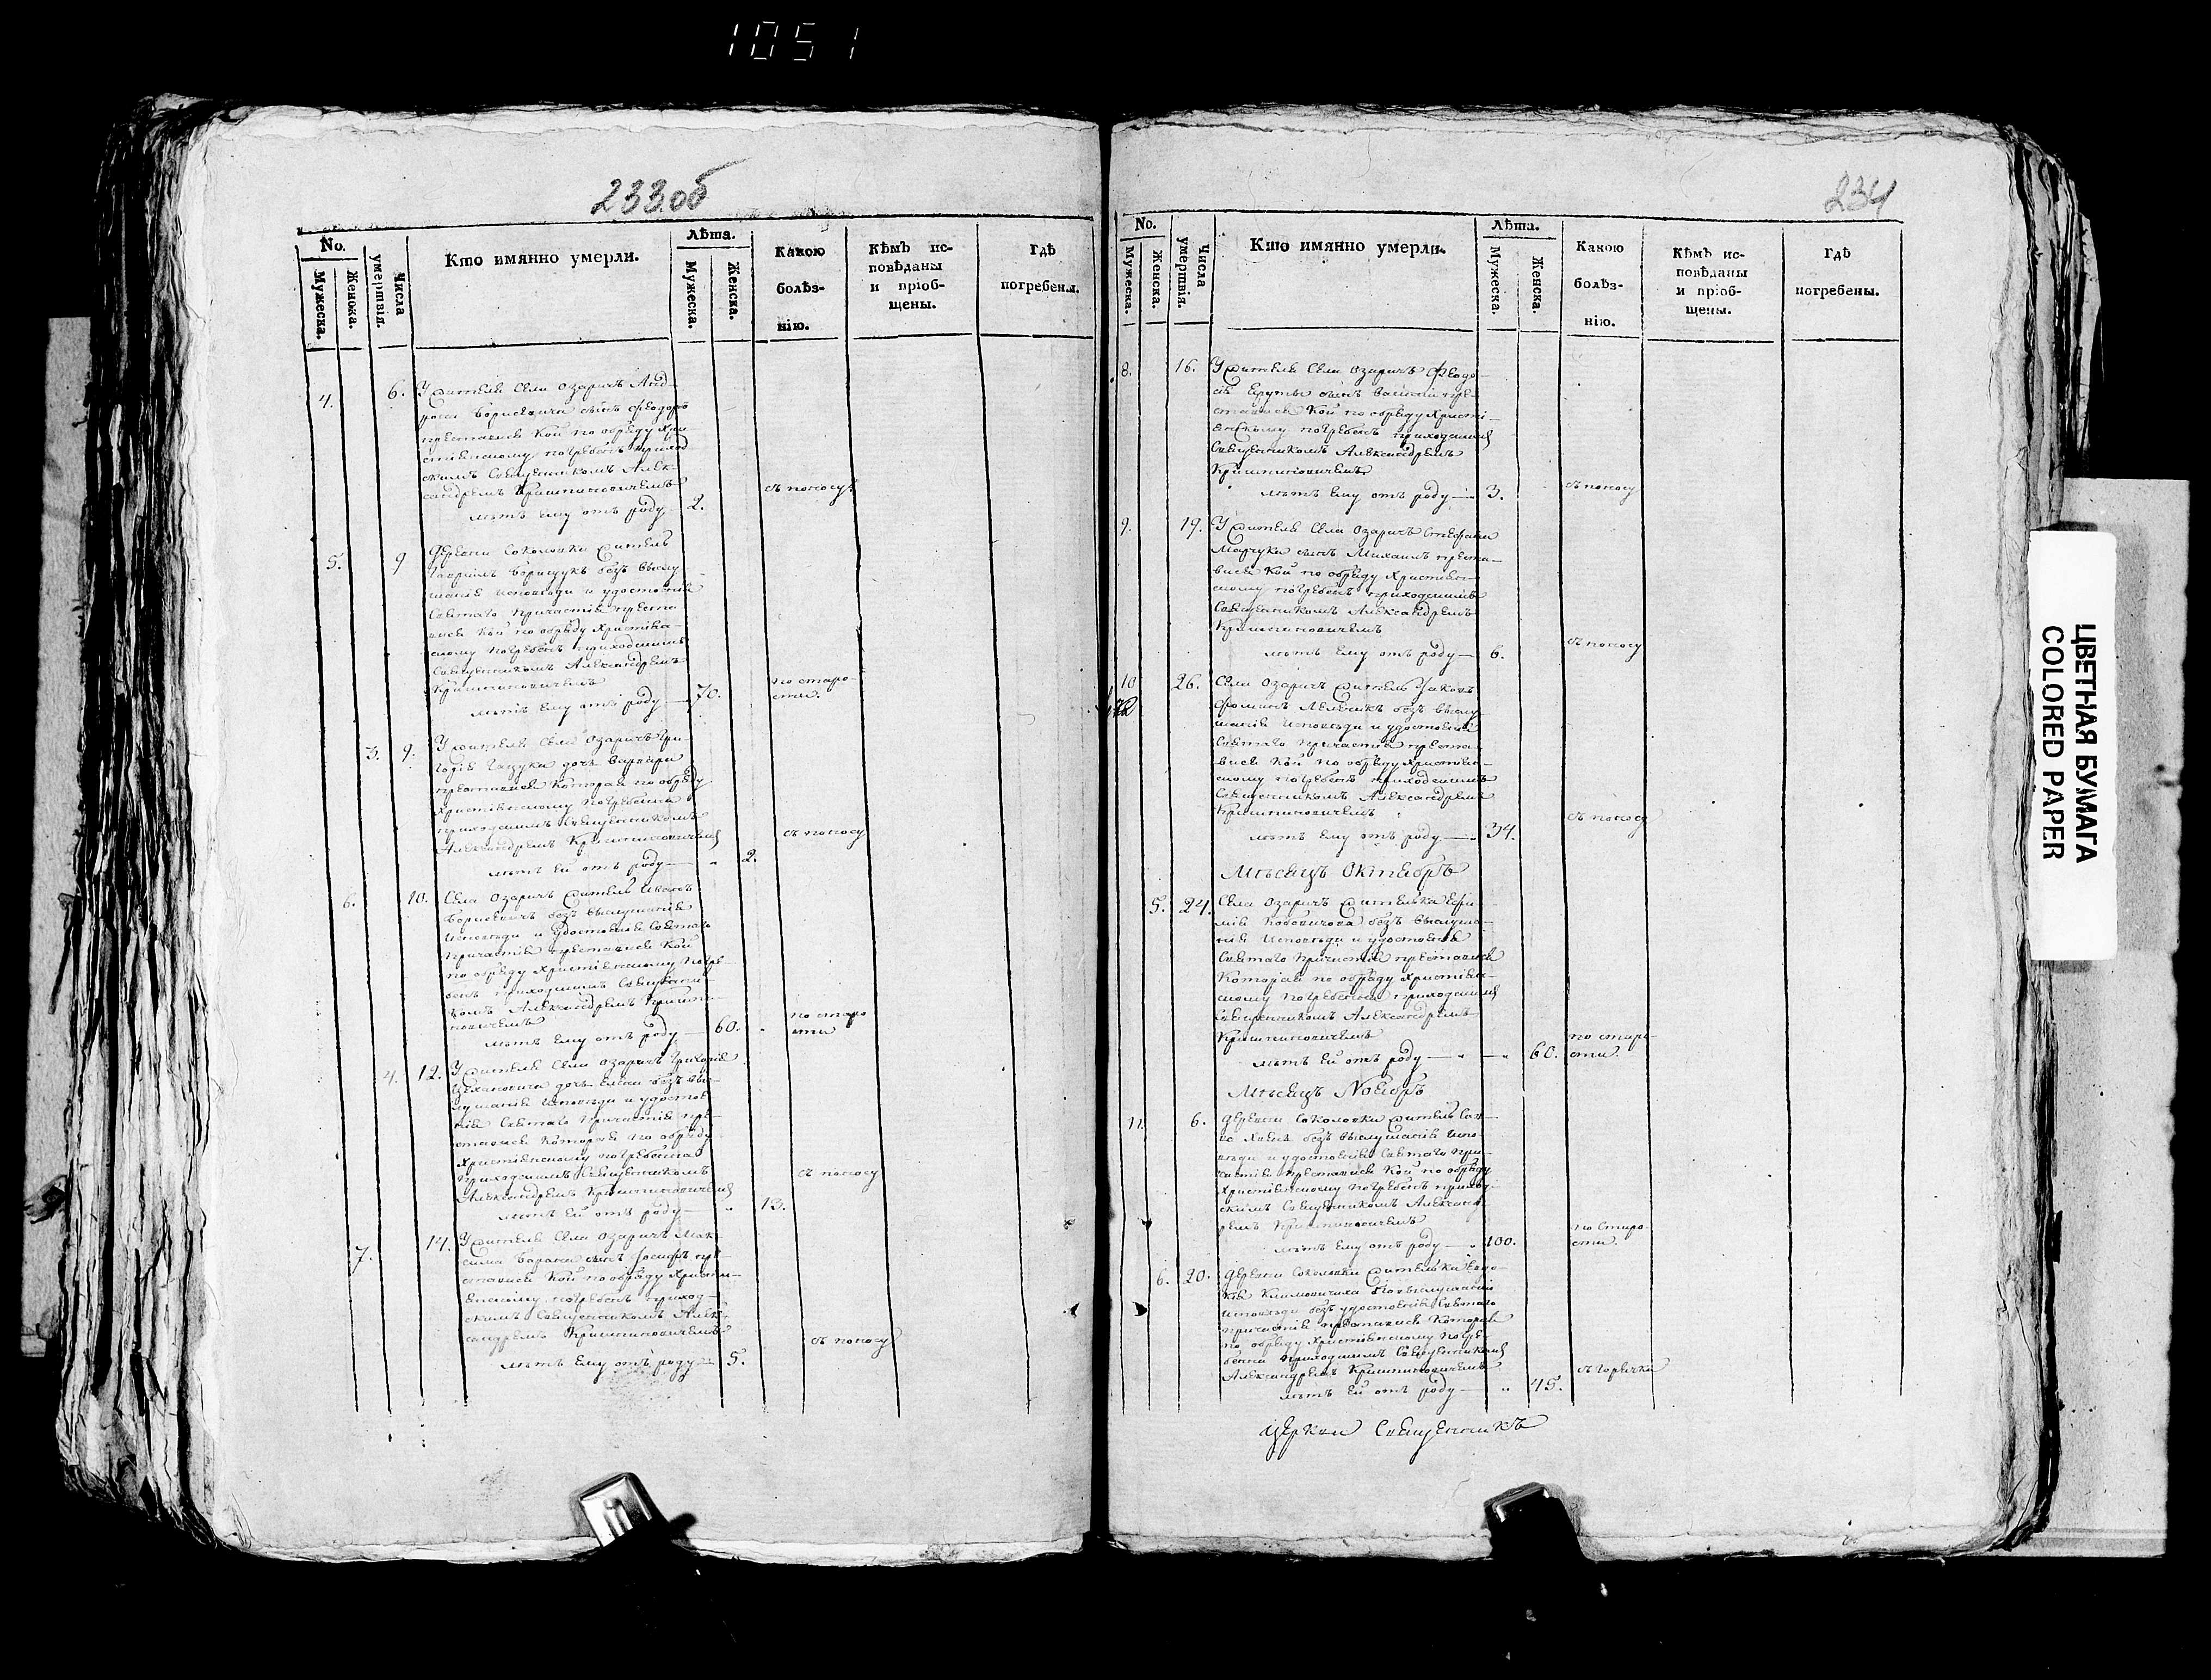 1051
233 об
No.
Мужеска.
Женска.
Числа умертвія.
Кто имянно умерли.
Лѣта.
Мужеска.
Женска.
Какою
болѣз-
нію.
Кѣмъ ис-
повѣданы
и пріоб-
щены.
Гдѣ
погребены.
4. 6. У жителя Села Озаричъ Анд-
Борисевича сынъ Феодоръ
преставися кой по обряду Хри
стіянскому погребенъ приход
скимъ Священникомъ Алек-
сандремъ Кришпиновичемъ съ поносу
лѣтъ ему отъ роду 2.
5. 9 Деревни Соколовки житель
Гавріилъ Борисукъ безъ выслу
шанія исповѣди и удостоенія
Святаго Причастія преста
вися кой по обряду Христіян-
скому погребенъ приходскимъ
Священникомъ Александремъ
Кришпиновичемъ по старо-
лѣтъ ему отъ роду 70. сти.
3. 9. У жителя Села Озаричъ Гри-
горія Гацука дочь Варвара
преставися которая по обряду
Христіянскому погребенна
приходскимъ Священникомъ
Александремъ Кришпиновичемъ съ поносу
лѣтъ ей отъ роду " 2.
6. 10. Села Озаричъ житель Иванъ
Борисевичъ безъ выслушанія
исповѣди и удостоенія Святаго
Причастія преставися кой
по обряду Христіянскому погре-
бенъ приходскимъ Священни-
комъ Александремъ Кришпи-
новичемъ по старо
лѣтъ ему отъ роду 60. сти
4. 12. У жителя Села Озаричъ Григорія
дочь Елена безъ выс-
лушанія исповѣди и удостое
нія Святаго Причастія пре-
ставися которая по обряду
Христіянскому погребенна
приходскимъ Священникомъ съ поносу
Александремъ Кришпиновичемъ
лѣтъ ей отъ роду " 13.
7. 14. У жителя Села Озаричъ Мак-
сима сынъ Іосифъ пре
ставися кой по обряду Христі-
янскому погребенъ приход-
скимъ Священникомъ Алек-
сандремъ Кришпиновичемъ съ поносу
лѣтъ ему отъ роду 5.
234
No.
Мужеска.
Женска.
Числа умертвія.
Кто имянно умерли.
Лѣта.
Мужеска.
Женска.
Какою
болѣз-
нію.
Кѣмъ ис-
повѣданы
и пріоб-
щены.
Гдѣ
погребены.
8. 16. У жителя Села Озаричъ Феодо-
сія сынъ Василій пре-
ставися кой по обряду Христі-
янскому погребенъ приходскимъ
Священникомъ Александремъ
Кришпиновичемъ
лѣтъ ему отъ роду 3. съ поносу
9. 19. У жителя Села Озаричъ Стефана
Марчука сынъ Михаилъ преста-
вися кой по обряду Христіян-
скому погребенъ приходскимъ
Священникомъ Александремъ
Кришпиновичемъ
лѣтъ ему отъ роду 6. съ поносу
10 26. Села Озаричъ житель Іаковъ
Фоминъ безъ выслу-
шанія исповѣди и удостоенія
Святаго Причастія преста-
вися кой по обряду Христіян-
скому погребенъ приходскимъ
Священникомъ Александремъ
Кришпиновичемъ съ поносу
лѣтъ ему отъ роду 34.
Мѣсяцъ Октябрь
5. 24. Села Озаричъ жителька Ефи-
мія безъ выслуша-
нія исповѣди и удостоенія
Святаго Причастія преставися
которая по обряду Христіян-
скому погребенна приходскимъ
Священникомъ Александремъ
Кришпиновичемъ по старо-
лѣтъ ей отъ роду " 60. сти.
Мѣсяцъ Ноябрь
11. 6. Деревни Соколовки житель
безъ выслушанія испо-
вѣди и удостоенія Святаго При-
частія преставися кой по обряду
Христіянскому погребенъ приход-
скимъ Священникомъ Александ-
ремъ Кришпиновичемъ по старо-
лѣтъ ему отъ роду 100. сти.
6. 20. Деревни Соколовки жителька Евдо-
кія Климовичиха по выслушаніи
исповѣди безъ удостоенія Святаго
Причастія преставися которая
по обряду Христіянскому погре
бенна приходскимъ Священникомъ
Александремъ Кришпиновичемъ съ горячки
лѣтъ ей отъ роду " 45.
церкви Священникъ
ЦВЕТНАЯ БУМАГА
COLORED PAPER